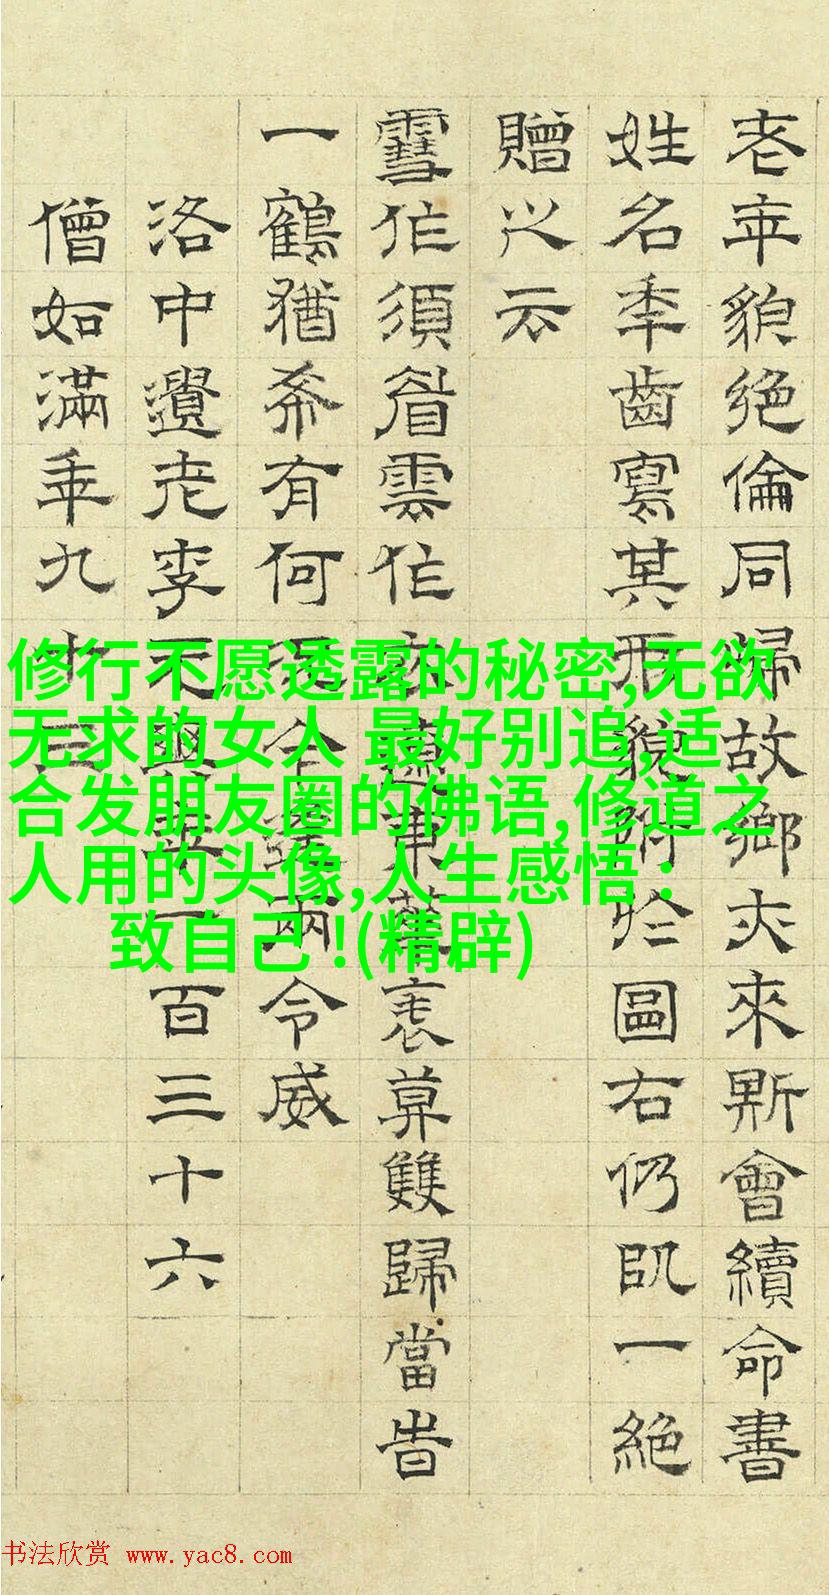 老年貌絕倫同歸故鄉亦來斯會續命書
姓名年齒寫其形貌附於圖右仍以一絕
贈之云
雪作須眉雲作衣遼東華表暮雙歸當時
一鶴猶希有何況今逢兩令威
洛中遺老李元爽年一百三十六
僧如滿年九十五
修行不愿透露的秘密,无欲
无求的女人 最好别追,适
合发朋友圈的佛语,修道之
人用的头像,人生感悟：
致自己！(精辟)
书法欣赏 www.yac8.com